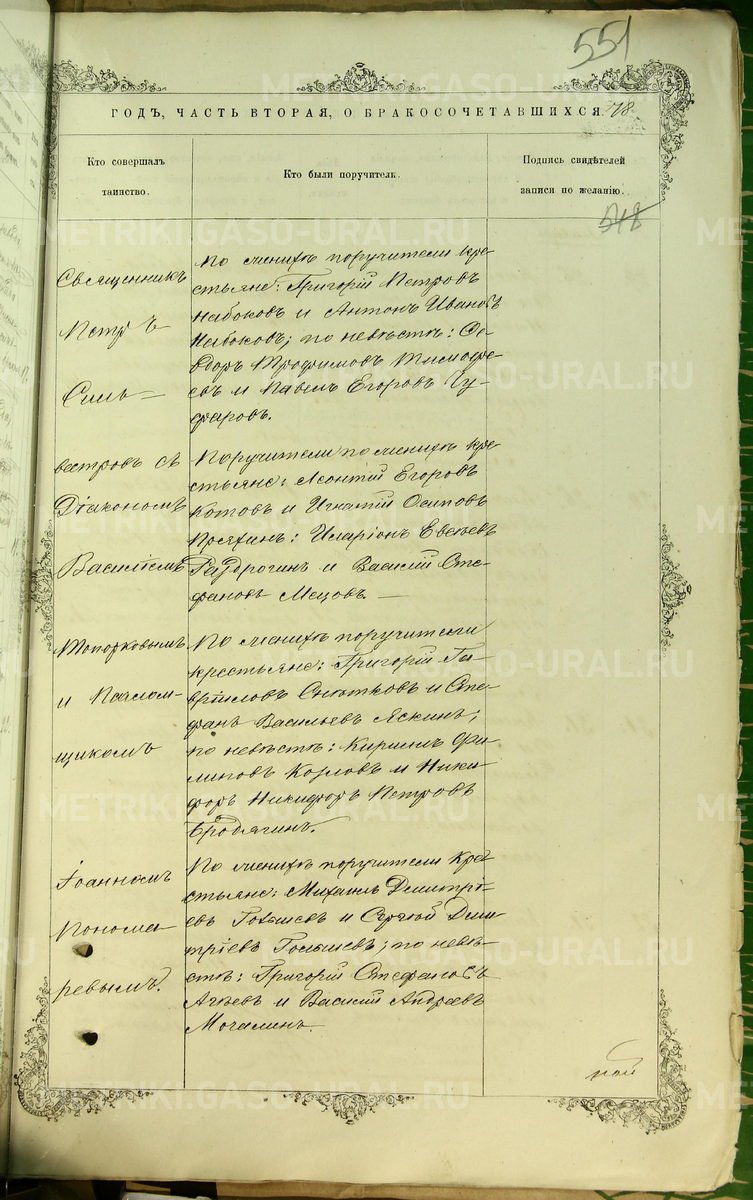 551
ГОДЪ, ЧАСТЬ ВТОРАЯ, О БРАКОСОЧЕТАВШИХСЯ.
Кто совершалъ
таинство.
Кто были поручители.
Подпись свидѣтелей
записи по желанію.
518
Священникъ
Петръ
Силь=
вестровъ съ
Діакономъ
Василіемъ
Топорковымъ
и Псалом-
щикомъ
Іоанномъ
Понома-
ревымъ.
По женихѣ поручители кре-
стьяне: Григорій Петровъ
Набоковъ и Антонъ Ивановъ
Набоковъ; по невѣстѣ: Ѳе-
доръ Трофимовъ Тимофе-
евъ и Павелъ Егоровъ Чу-
фаровъ.
Поручители по женихѣ кре-
стьяне: Леонтій Егоровъ
Котовъ и Игнатій Осиповъ
Иларіонъ Евсѣевъ
и Василій Сте-
фановъ
По женихѣ поручители
крестьяне: Григорій Га-
вріиловъ Снятковъ и Сте-
фанъ Васильевъ Яскинъ;
по невѣстѣ: Кириллъ Фи-
липовъ Козловъ и Ники-
форъ Никифоръ Петровъ
Бродягинъ.
По женихѣ поручители Кре-
стьяне: Михаилъ Димитрі-
евъ Голышевъ и Сергѣй Дими-
тріевъ Голышевъ; по невѣ-
стѣ: Григорій Стефановъ
Агѣевъ и Василій Андреевъ
Мочалинъ.
METRIKI.GASO-URAL.RU